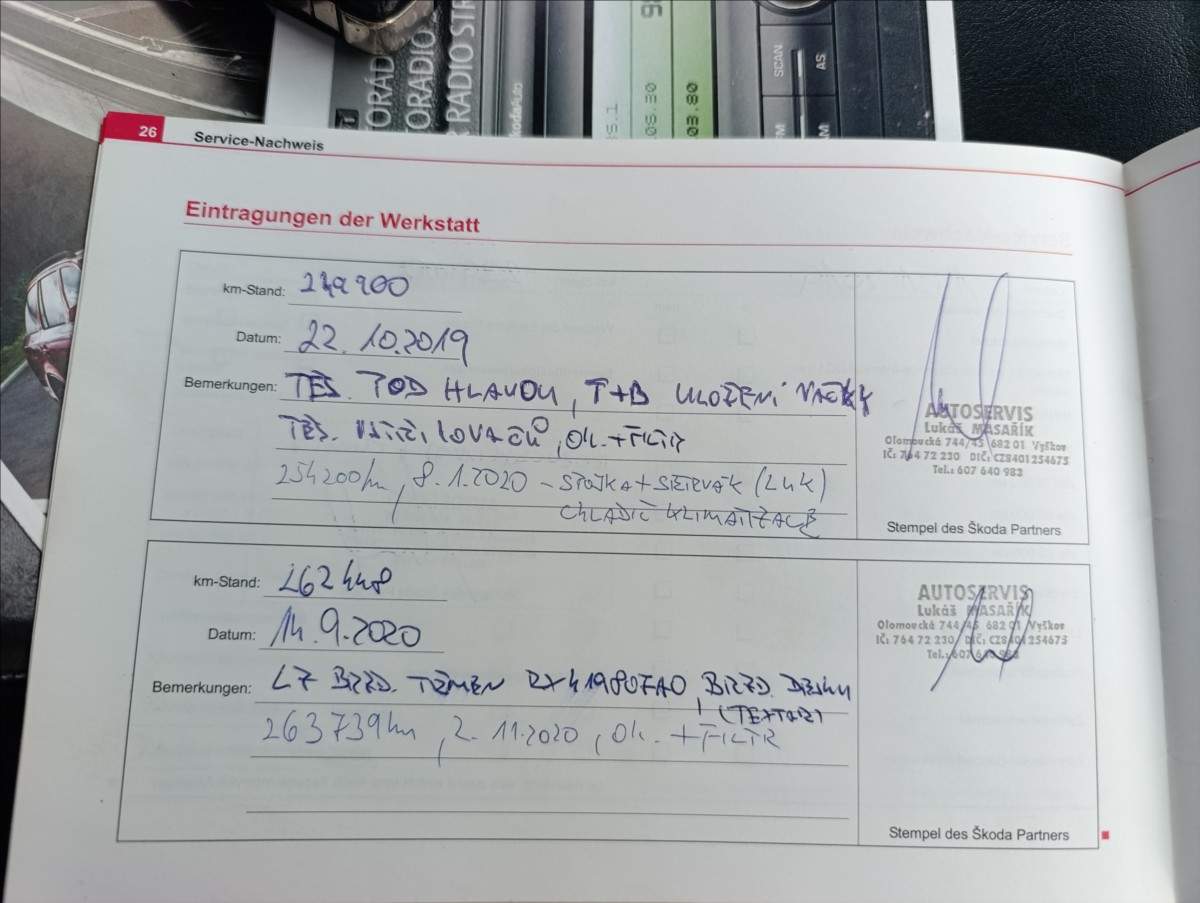 TORÁD
TORADIO
R RADIO STR
kodaAuto
08.30
03.80
SCAN
AS
26 Service-Nachweis
Eintragungen der Werkstatt
km-Stand: 249 900
Datum: 22. 10. 2019
Bemerkungen: TĚS. POD HLAVOU, T+B ULOŽENÍ VAČKY
TĚS. VSTŘIKOVAČŮ, OL. + FILTR
254200 km, 8. 1. 2020 – STOJKA + SETRVAČ (LUK)
CHLADIČ KLIMATIZACE
AUTOSERVIS
Lukáš MASAŘÍK
Olomoucká 744/45 682 01 Vyškov
IČ: 764 72 230 DIČ: CZ8401254675
Tel.: 607 640 983
Stempel des Škoda Partners
km-Stand: 262 448
Datum: 14. 9. 2020
Bemerkungen: LZ BRZD. TŘMEN BRZD. DESKY
(TEXTAR)
263739 km, 2. 11. 2020, OL. + FILTR
AUTOSERVIS
Lukáš MASAŘÍK
Olomoucká 744/45 682 01 Vyškov
IČ: 764 72 230 DIČ: CZ8401254675
Tel.: 607 640 983
Stempel des Škoda Partners